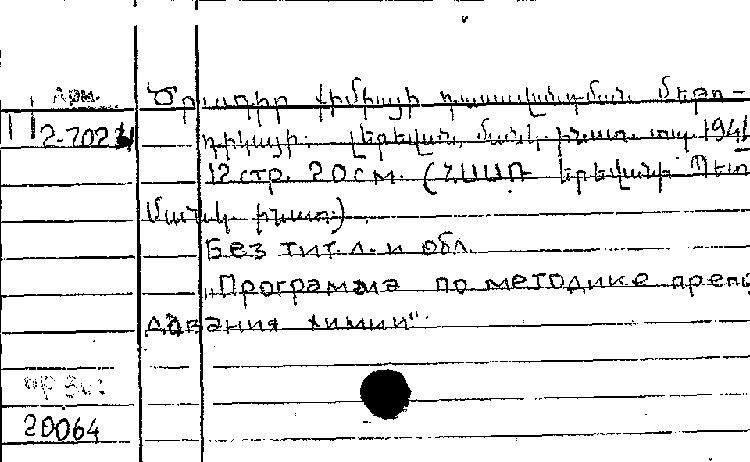 Арм.
Ծրագիր քիմիայի դասավանդման մեթո-
П 2-7023
դիկայի. Երեվան, մանկ. ինստ. տպ. 1941
12 стр. 20 см. (ՀՍՍՌ Երեվանի Պետ
Մանկ. ինստ.).
Без тит. л. и обл.
„Программа по методике препо
давания химии“.
20064